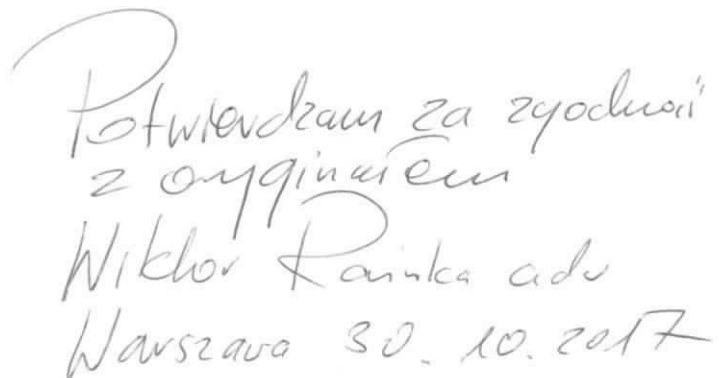 Potwierdzam za zgodność
z oryginałem
Wiktor Rainka adw
Warszawa 30. 10. 2017